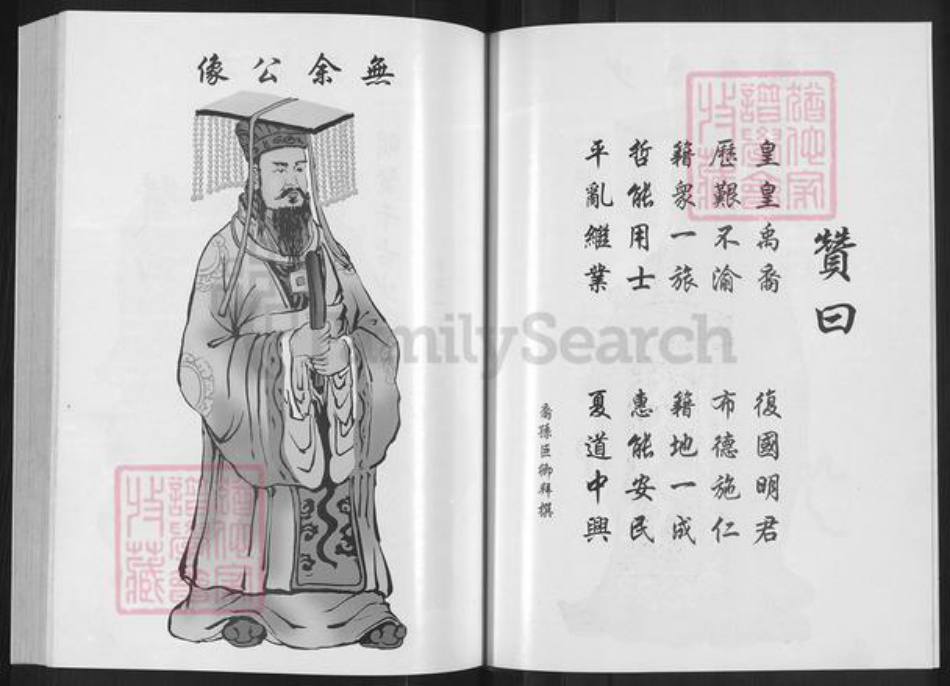 無余公像
贊曰
皇皇禹裔 復國明君
歷艱不渝 布德施仁
籍衆一旅 籍地一成
哲能用士 惠能安民
平亂繼業 夏道中興
裔孫臣御拜撰
FamilySearch